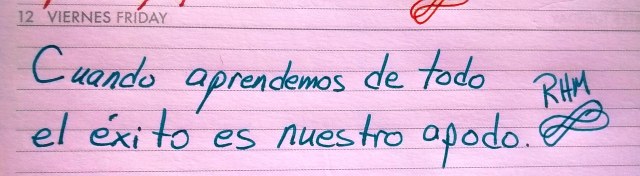 12 VIERNES FRIDAY
Cuando aprendemos de todo
el éxito es nuestro apodo.
RHM